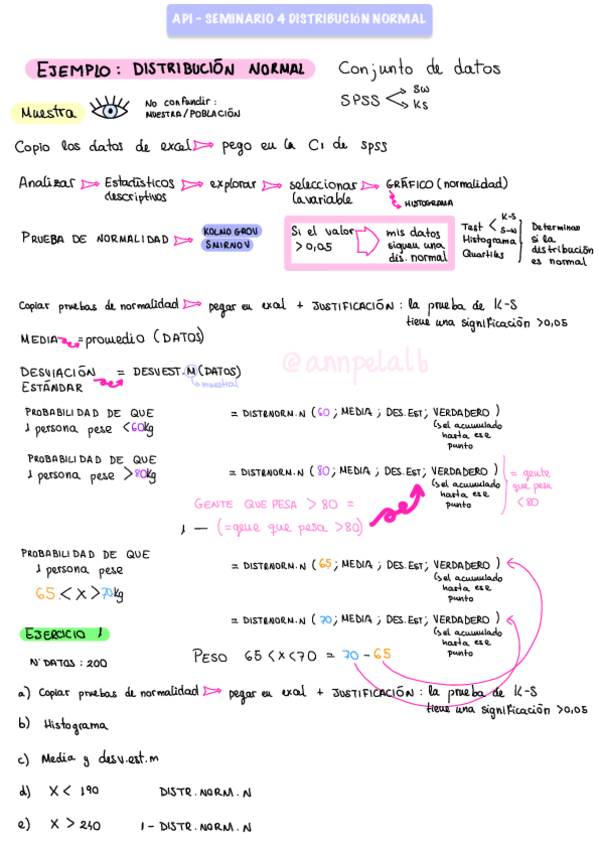 API - SEMINARIO 4 DISTRIBUCIÓN NORMAL
EJEMPLO: DISTRIBUCIÓN NORMAL
Conjunto de datos
SPSS
SW
KS
Muestra
No confundir:
MUESTRA/POBLACIÓN
Copio los datos de excel pego en la C1 de spss
Analizar Estadísticos descriptivos explorar seleccionar la variable GRÁFICO (normalidad)
HISTOGRAMA
PRUEBA DE NORMALIDAD
KOLNO GROV
SMIRNOV
Si el valor > 0,05
mis datos siguen una dis. normal
Test
K-S
S-W
Histograma
Quartiles
Determinan si la distribución es normal
Copiar pruebas de normalidad pegar en exal + JUSTIFICACIÓN: la prueba de K-S
tiene una significación >0,05
MEDIA = promedio (DATOS)
@annpelalb
DESVIACIÓN ESTÁNDAR = DESVEST.M (DATOS)
muestral
PROBABILIDAD DE QUE
1 persona pese <60kg
= DISTR.NORM.N (60; MEDIA; DES.EST; VERDADERO)
(s el acumulado
hasta ese
punto
PROBABILIDAD DE QUE
1 persona pese >80kg
= DISTR.NORM.N (80; MEDIA; DES.EST; VERDADERO)
(s el acumulado
hasta ese
punto
= gente
que pesa
<80
GENTE QUE PESA > 80 =
1 — (=geue que pesa >80)
PROBABILIDAD DE QUE
1 persona pese
65 < x > 70kg
= DISTR.NORM.N (65; MEDIA; DES.EST; VERDADERO)
(s el acumulado
hasta ese
punto
= DISTR.NORM.N (70; MEDIA; DES.EST; VERDADERO)
(s el acumulado
hasta ese
punto
PESO 65 < x < 70 = 70 - 65
EJERCICIO 1
Nº DATOS: 200
a) Copiar pruebas de normalidad pegar en exal + JUSTIFICACIÓN: la prueba de K-S
tiene una significación >0,05
b) Histograma
c) Media y desv.est.m
d) X < 190 DISTR.NORM.N
e) X > 240 1 - DISTR.NORM.N